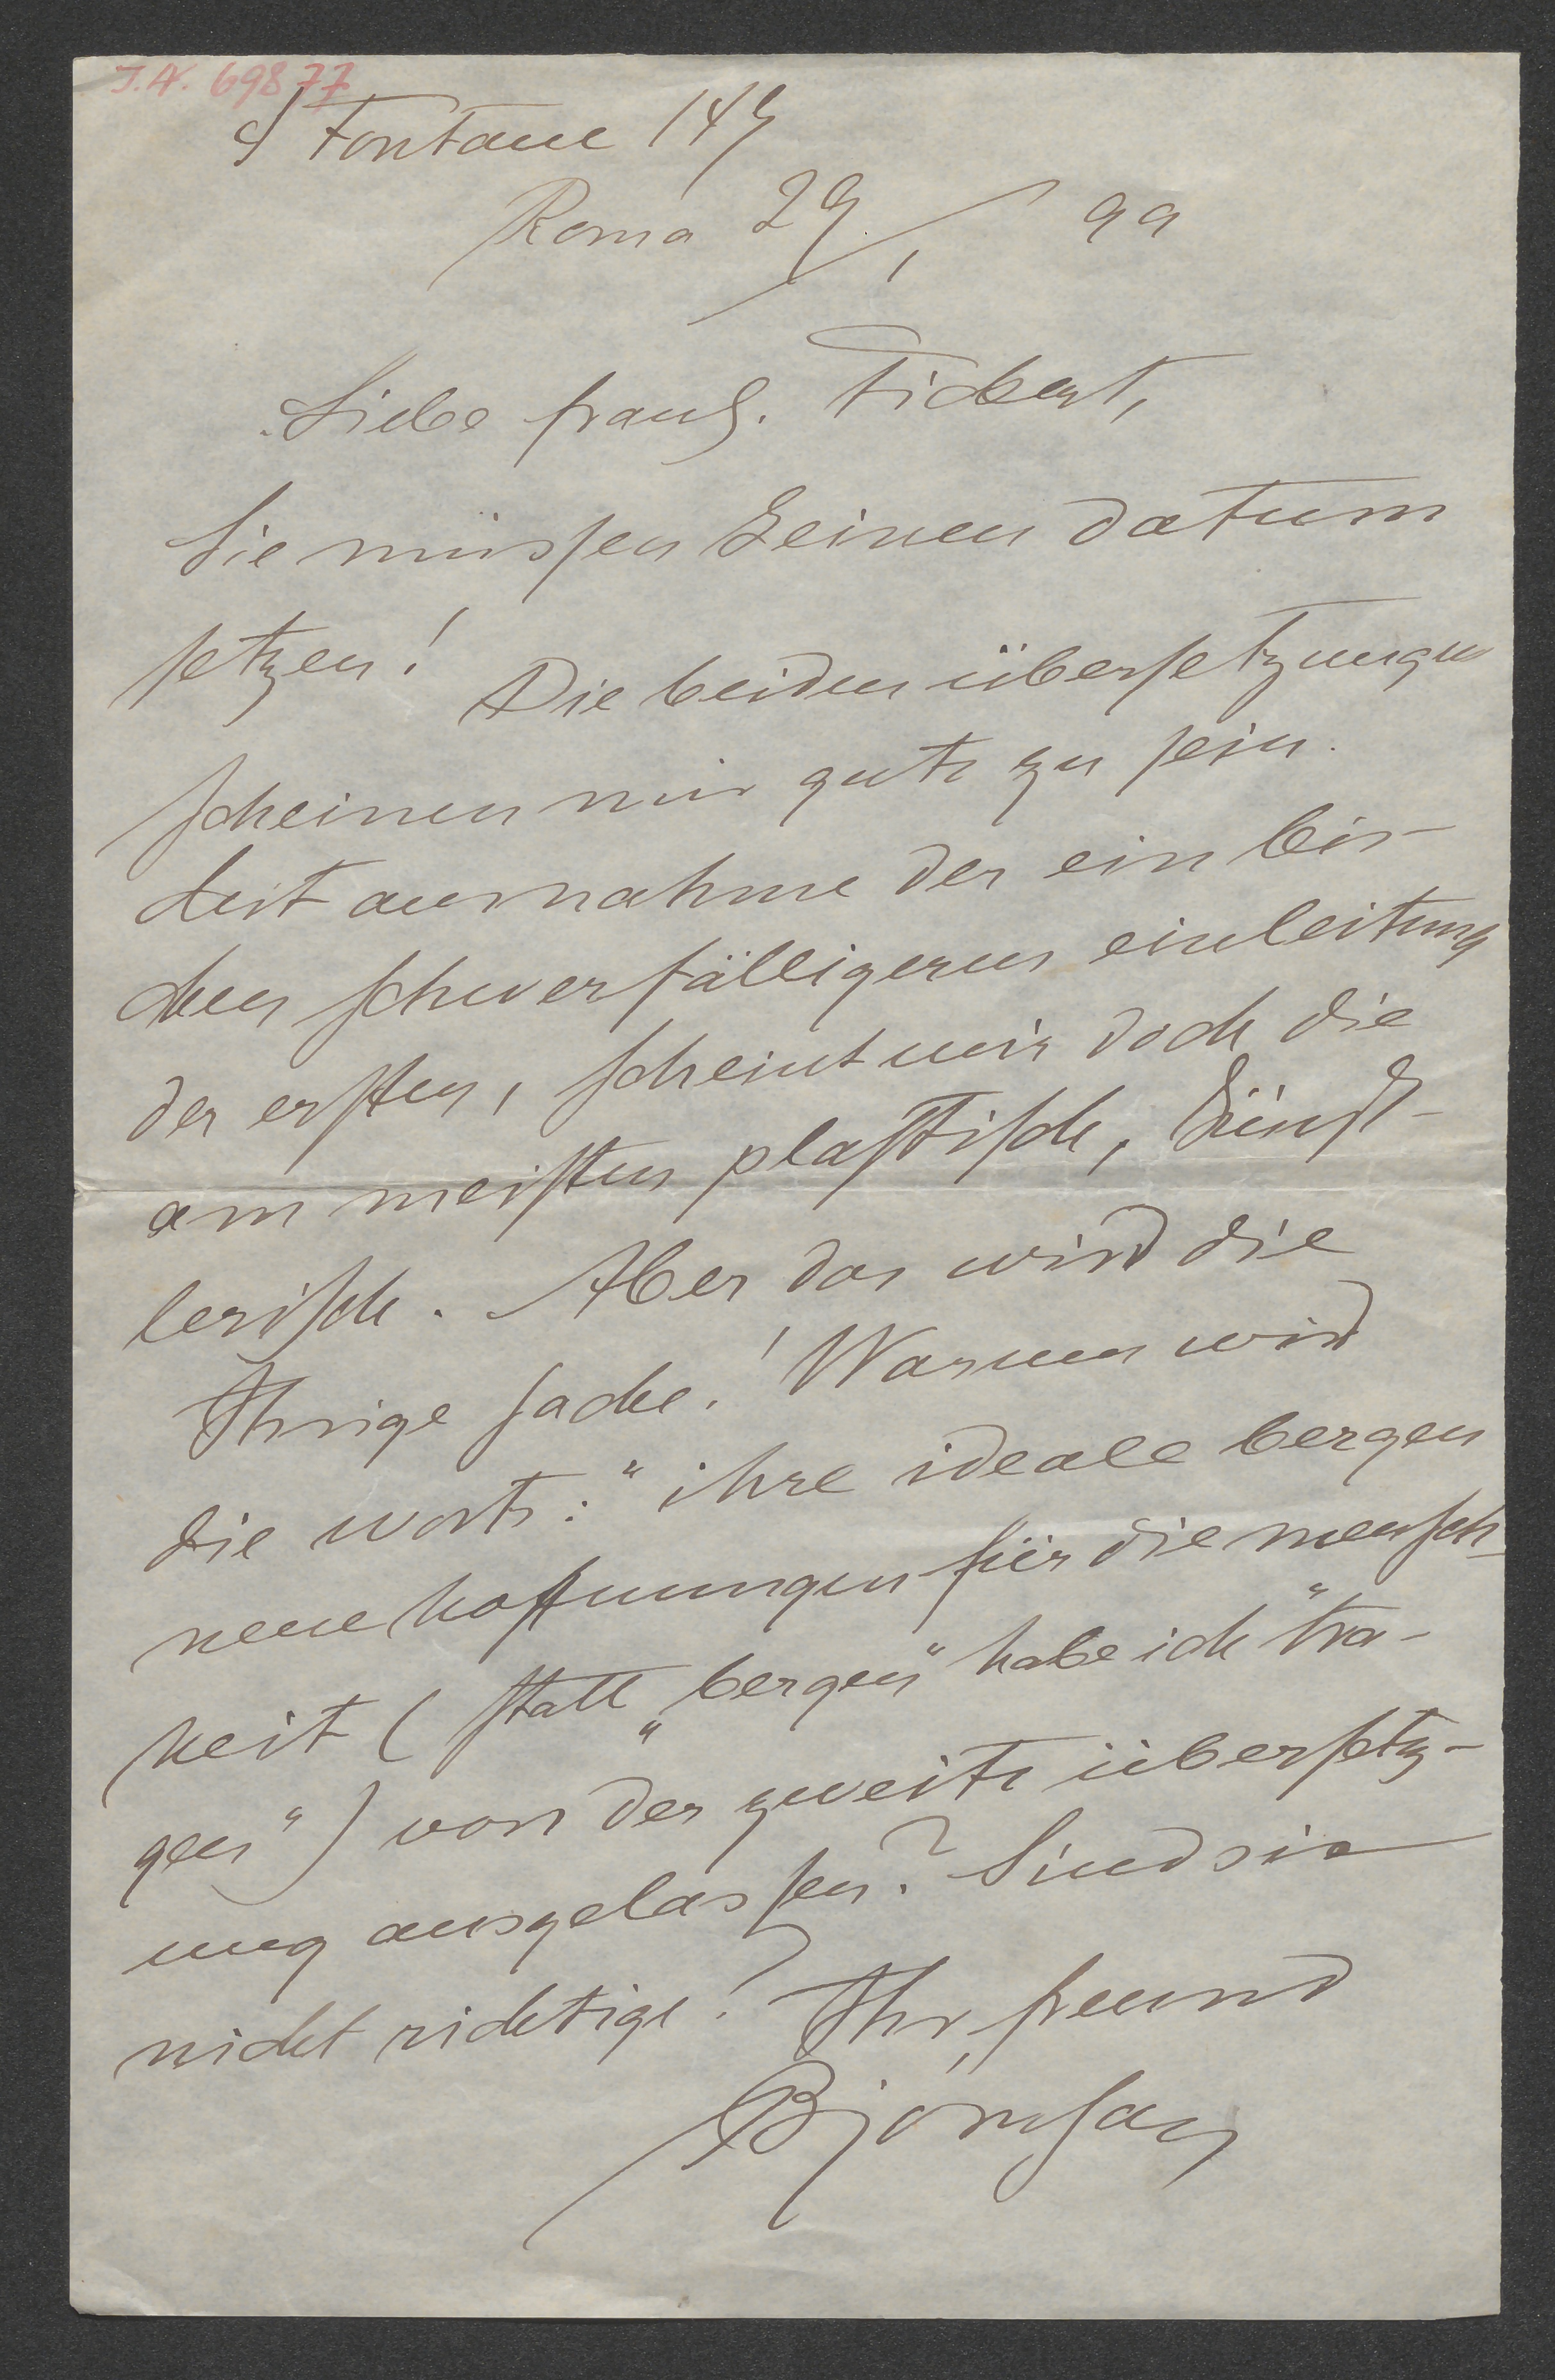 J.N. 69877
4 Fontane 149
Roma 29/1 99
Liebe Frau F. Fickert,
Sie müssen keinen datum
setzen! Die beiden übersetzungen
scheinen mir gute zu sein.
Mit ausnahme der ein bis-
chen schwerfälligeren einleitung
der ersten, scheint mir doch die
am meisten plastisch, künst-
lerisch. Aber das wird die
Ihrige sache! Warum wird
die worte: "ihre ideale bergen
neue hoffnungen für die mensch-
heit (statt "bergen" habe ich "tra-
gen") von der zweite übersetz-
ung ausgelassen? Sind sie
nicht richtige? Ihr freund
Björnson